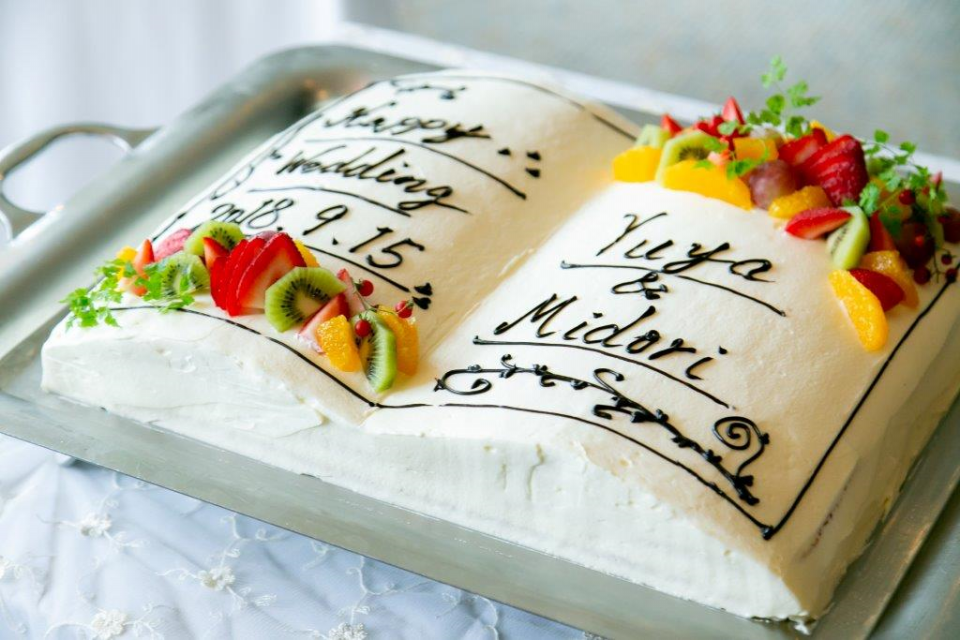 Happy
Wedding
2018.9.15
Yuya
&
Midori